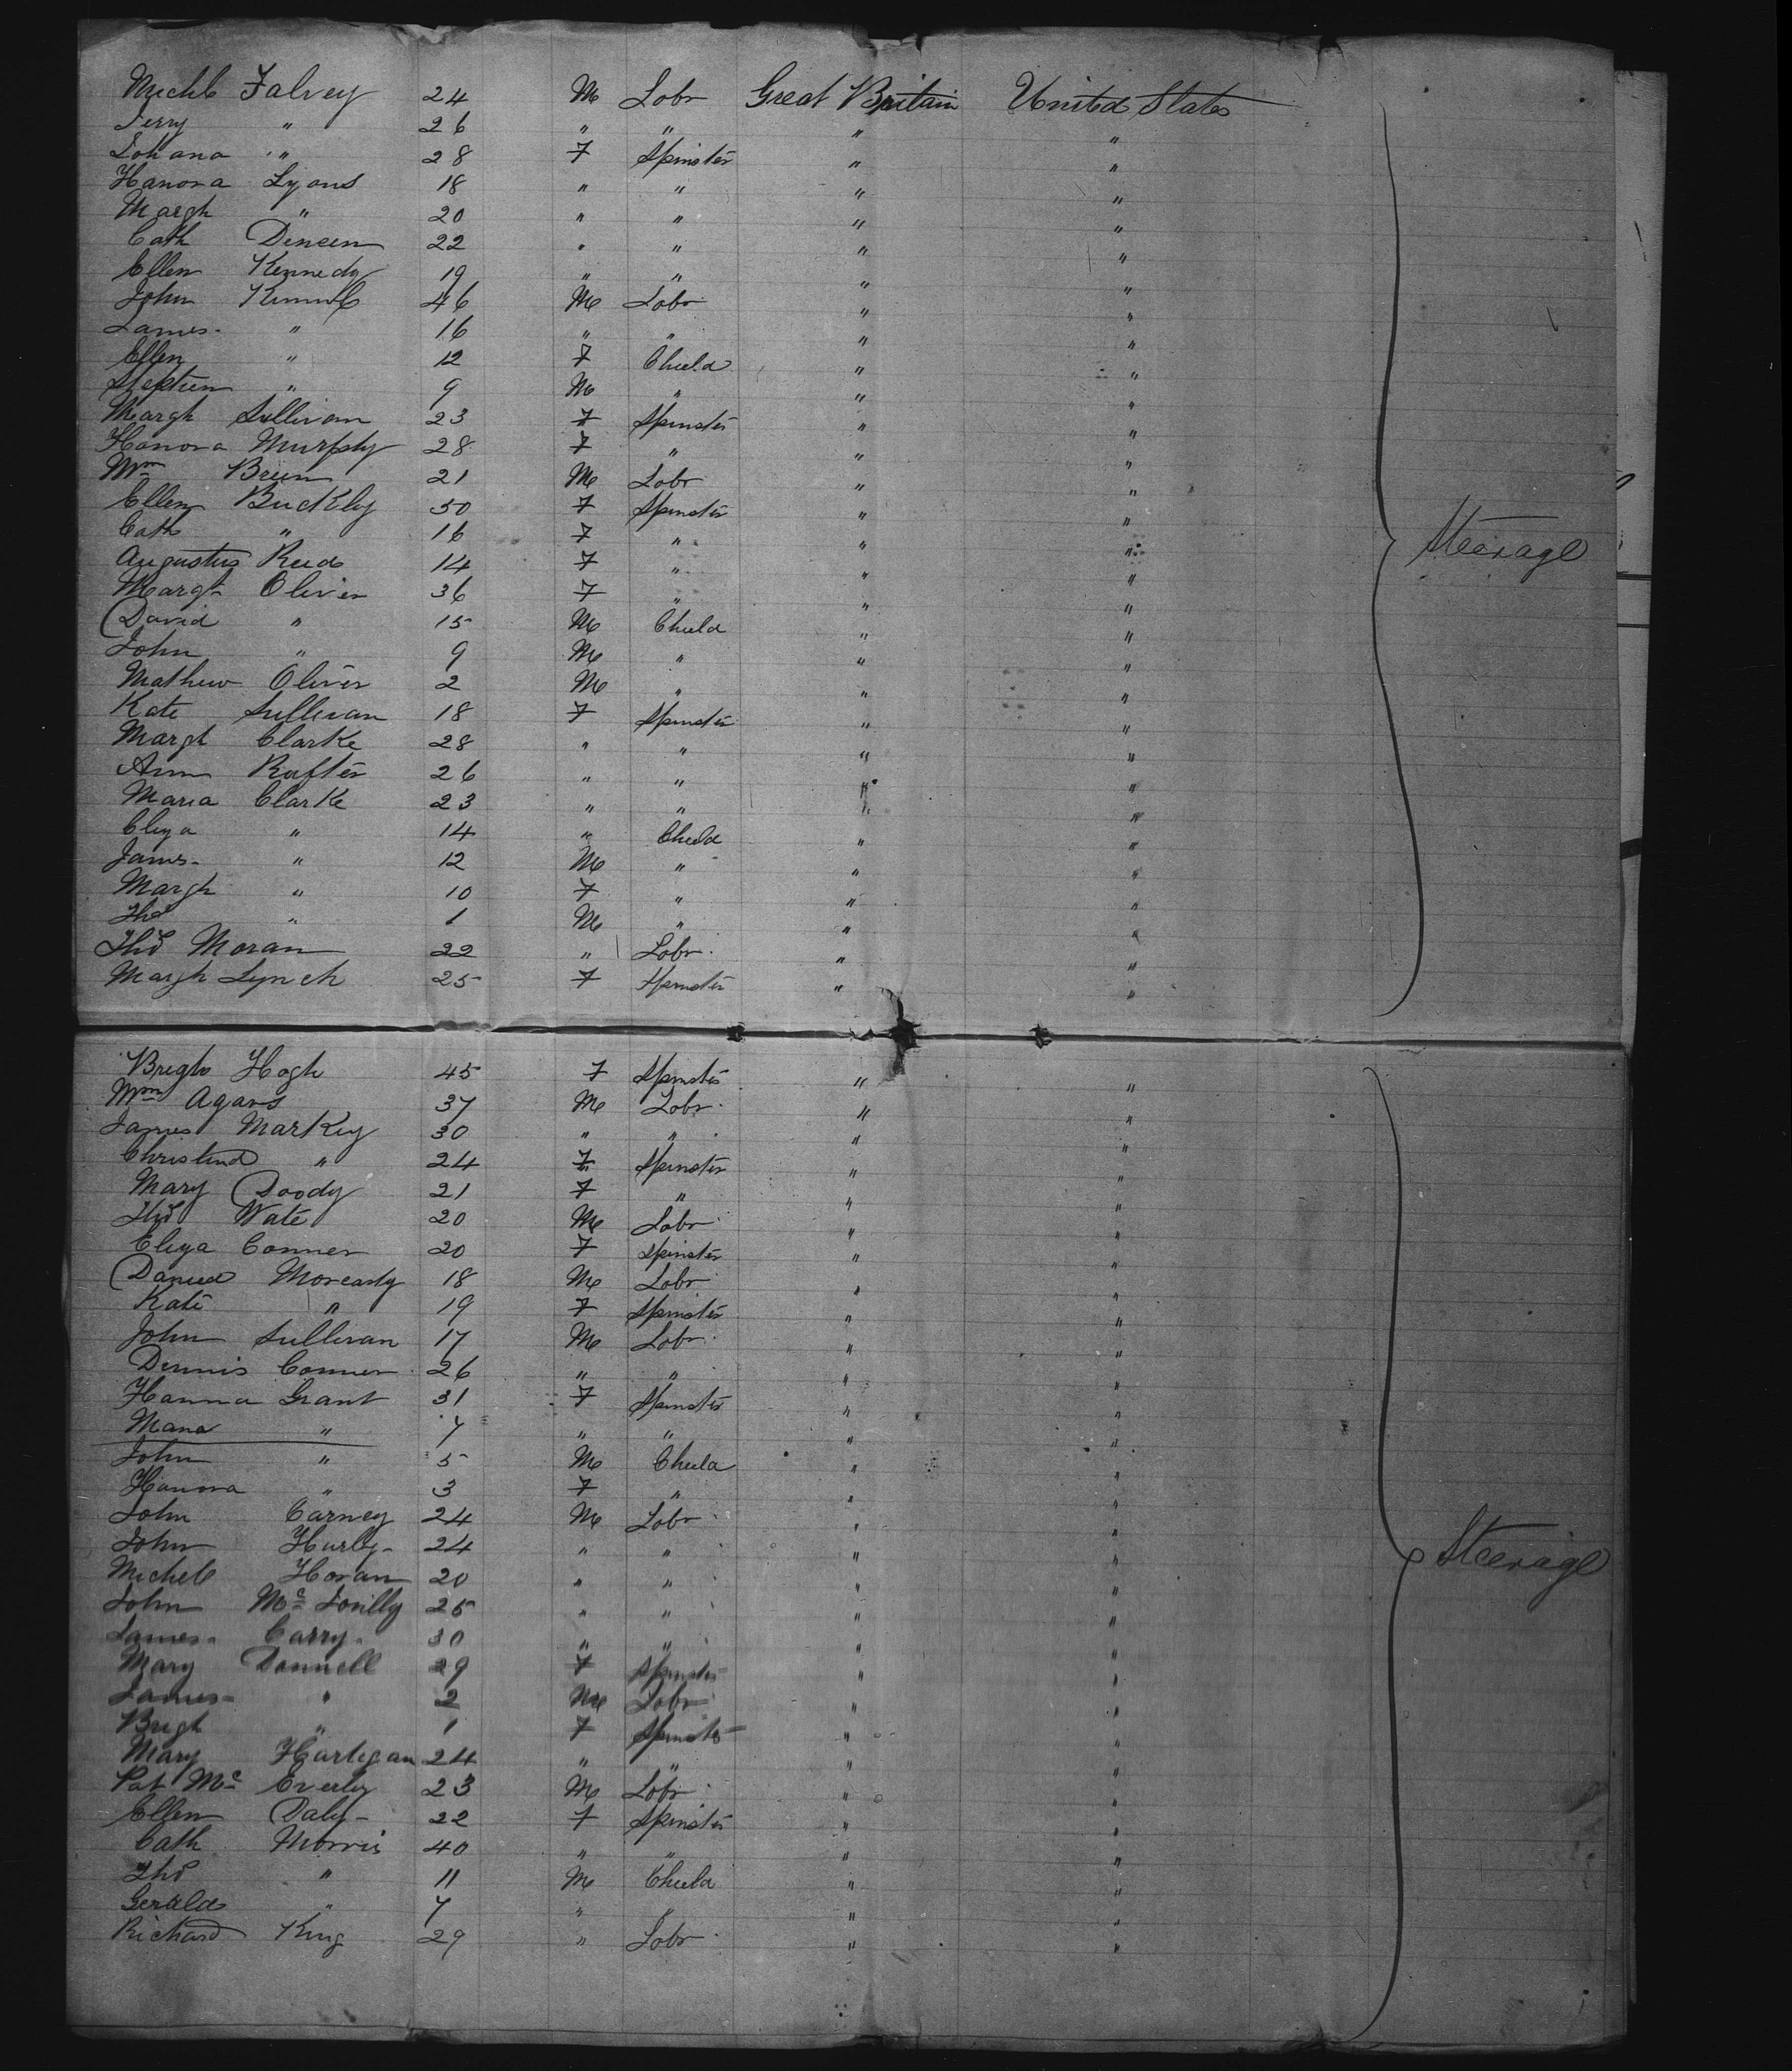 Michl Falvey 24 M Labr Great Britain United States
Jerry " 26 " " " "
Johana " 28 F Spinster " "
Hanora Lyons 18 " " " "
Margt " 20 " " " "
Cath Dineen 22 " " " "
Ellen Kennedy 19 " " " "
John 46 M Labr " "
James " 16 " " " "
Ellen " 12 F Child " "
Stephen " 9 M " " "
Margt Sullivan 23 F Spinster " "
Hanora Murphy 28 F " " "
Wm Breen 21 M Labr " "
Ellen Buckley 30 F Spinster " "
Cath " 16 F " " "
Augustus Reed 14 F " " "
Margt Oliver 36 F " " "
David " 15 M Child " "
John " 9 M " " "
Mathew Oliver 2 M " " "
Kate Sullivan 18 F Spinster " "
Margt Clarke 28 " " " "
Ann Rafter 26 " " " "
Maria Clarke 23 " " " "
Eliza " 14 " Child " "
James " 12 M " " "
Margt " 10 F " " "
Thos " 1 M " " "
Thos Moran 22 " Labr " "
Margt Lynch 25 F Spinster " "
Steerage
Bright Hogh 45 F Spinster " "
Wm Agars 37 M Labr " "
James Markey 30 " " " "
Christina " 24 F Spinster " "
Mary Doody 21 F " " "
Thos Wate 20 M Labr " "
Eliza Conner 20 F Spinster " "
Daniel Morearty 18 M Labr " "
Kate " 19 F Spinster " "
John Sullivan 17 M Labr " "
Dennis Conner 26 " " " "
Hanna Grant 31 F Spinster " "
Maria " 7 " " " "
John " 5 M Child " "
Hanora " 3 F " " "
John Carney 24 M Labr " "
John Hurley 24 " " " "
Michl Horan 20 " " " "
John 25 " " " "
James Carry 30 " " " "
Mary Donnell 29 F Spinster " "
James " 2 M Labr " "
Brigt " 1 F Spinster " "
Mary Hartegan 24 " " " "
Pat Mc Everly 23 M Labr " "
Ellen Daly 22 F Spinster " "
Cath Morris 40 " " " "
Thos " 11 M Child " "
Gerald " 7 " " " "
Richard King 29 " Labr " "
Steerage